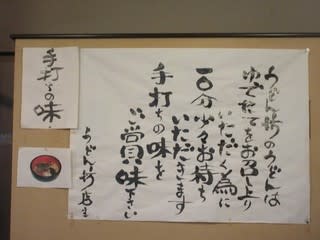 うどん坊のうどんは
ゆでたてをお召し上り
いただく為に
一〇分少々お待ち
いただきます
手打ちの味を
ご賞味下さい
うどん坊店主
手打ちの味